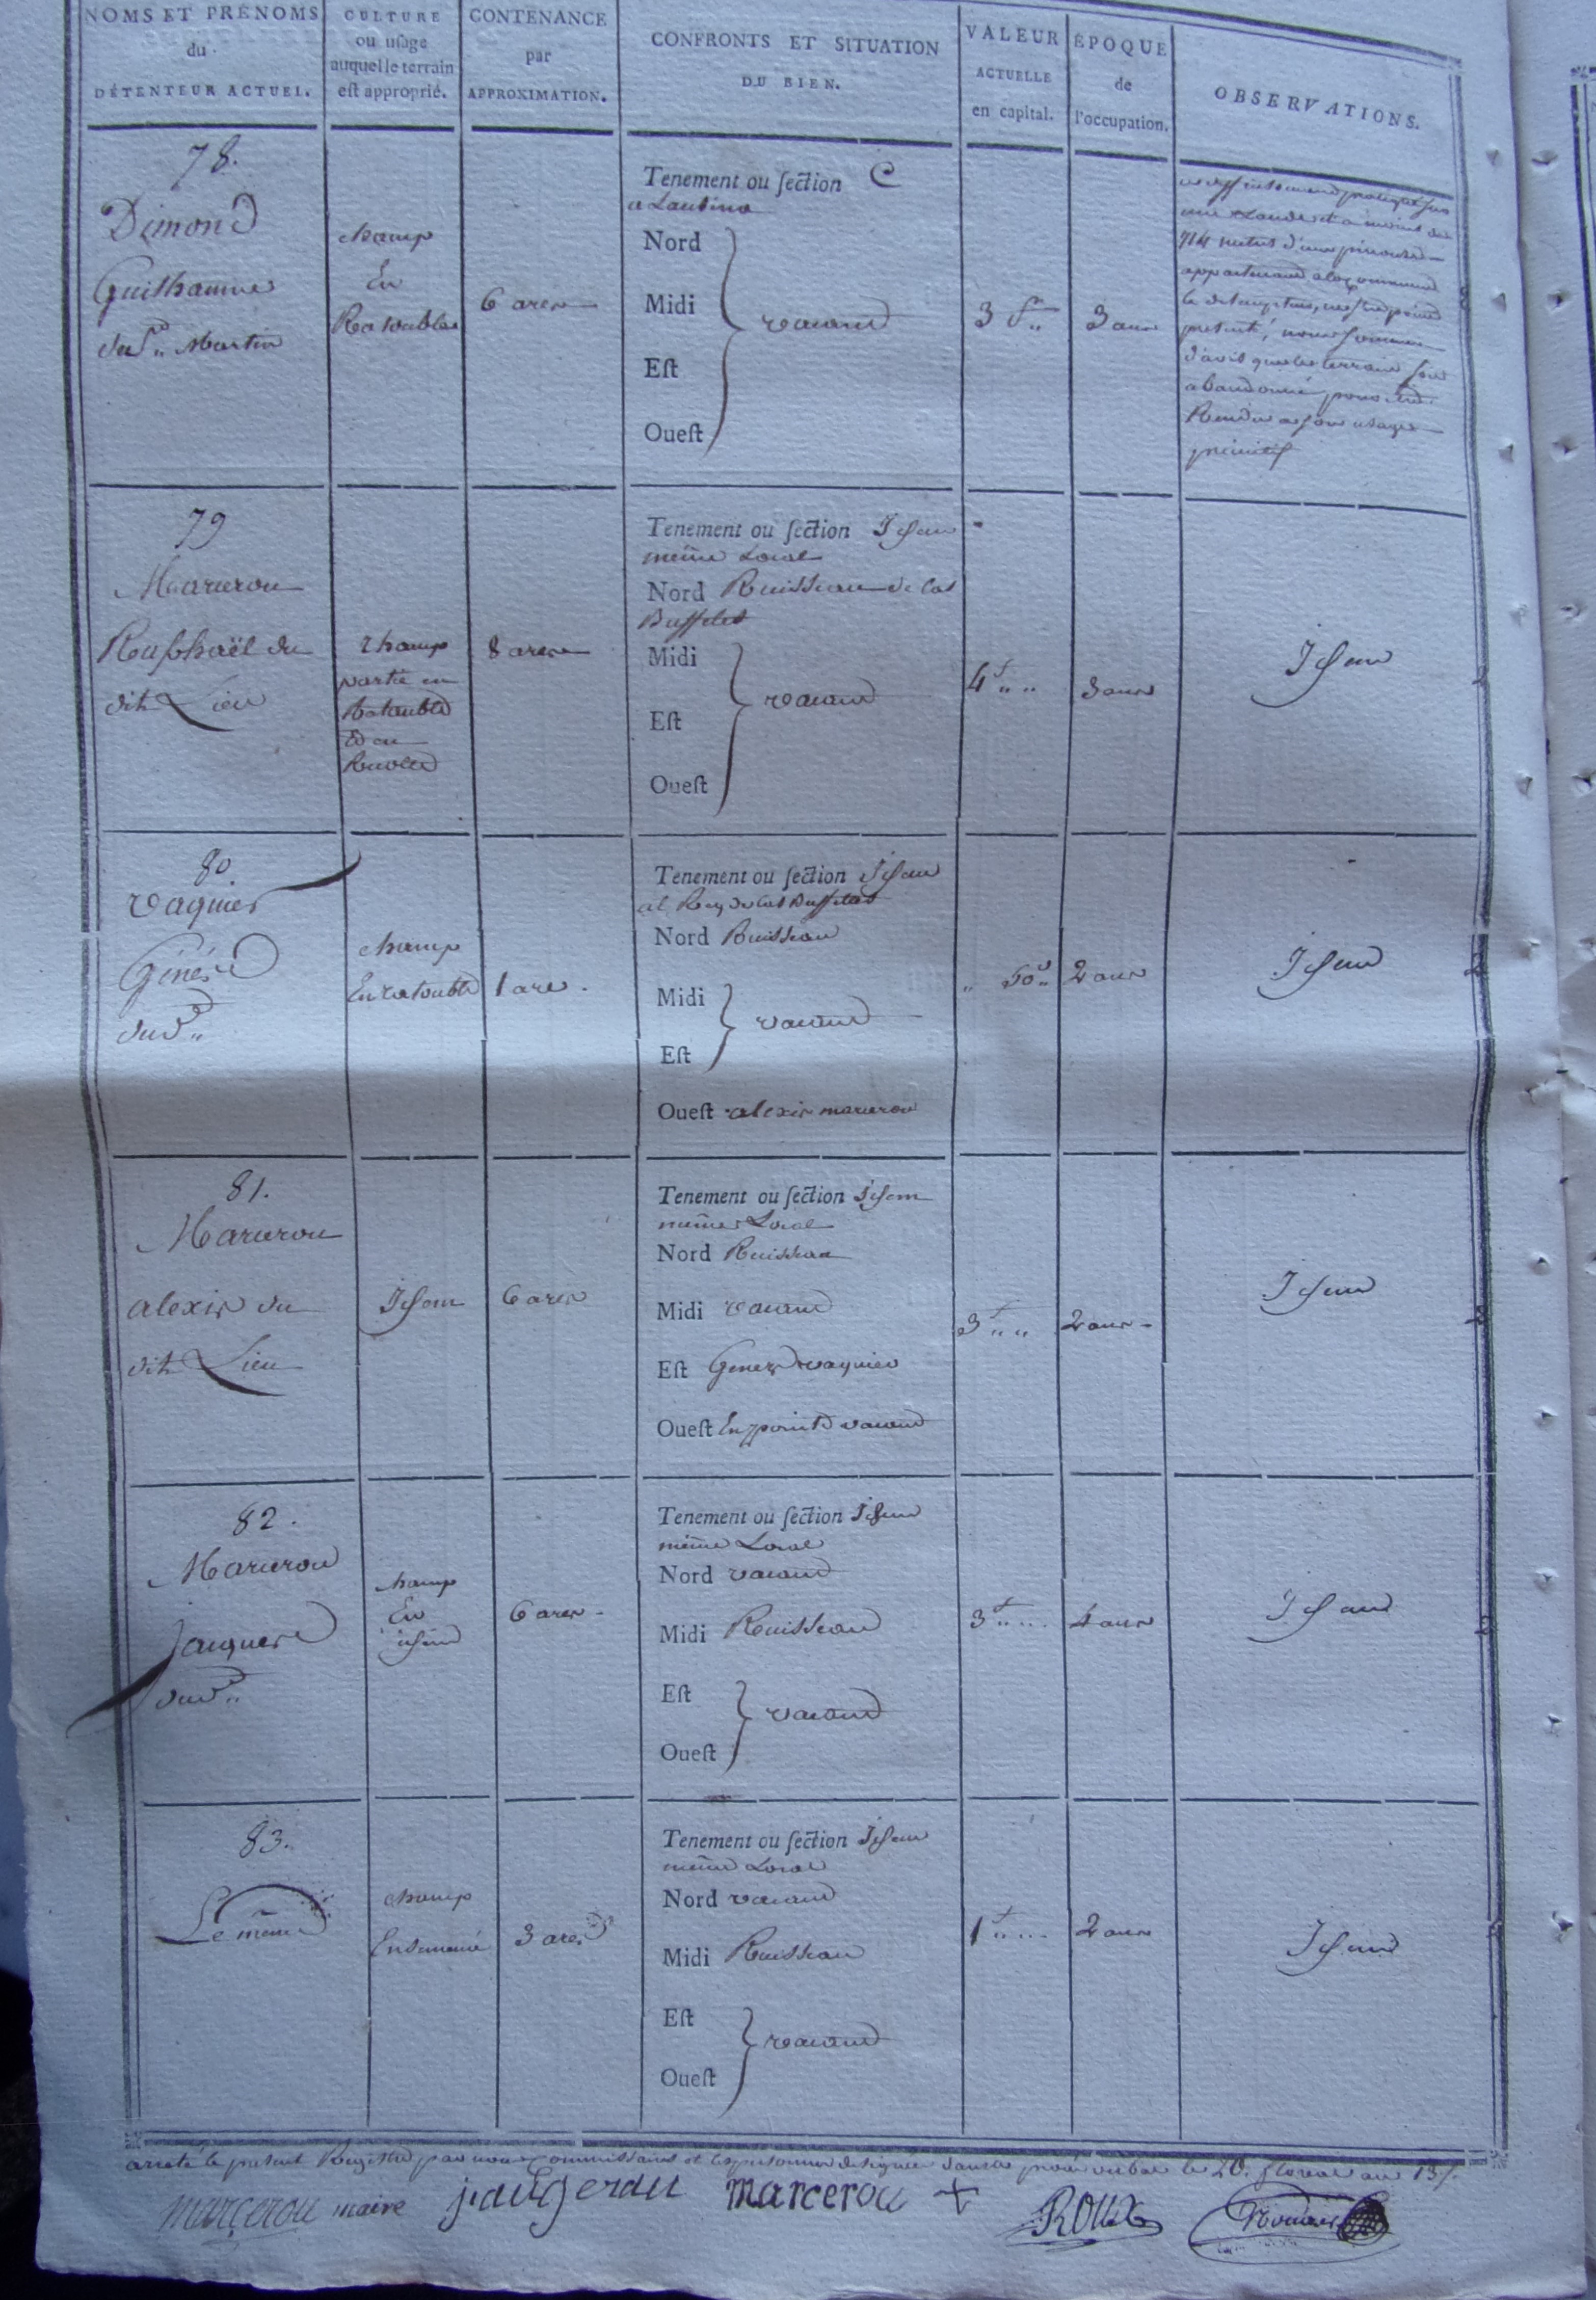 NOMS ET PRÉNOMS
du
DÉTENTEUR ACTUEL.
CULTURE
ou usage
auquel le terrain
est approprié.
CONTENANCE
par
APPROXIMATION.
CONFRONTS ET SITUATION
DU BIEN.
VALEUR
ACTUELLE
en capital.
ÉPOQUE
de
l'occupation.
OBSERVATIONS.
78.
Dimond
Guilhaume
du St. Martin
champ
En
Ratouble
6 ares
Tenement ou section C
a Lautina
Nord
Midi
Est
Ouest
vacand
3 f
3 ans
une Lande et a moins de
714 metres d'une
appartenand a la commune
d'avis que le terrain soit
abandonné pour etre
Rendu a son usage
primitif
79
Marcerou
Raphaël du
dit Lieu
champ
partie en
Ratouble
Et en
8 ares
Tenement ou section Idem
même Local
Nord Ruisseau de las
Buffetes
Midi
Est
Ouest
vacand
4 f
3 ans
Idem
80
vaquier
Génés
dud.
champ
En ratouble
1 are.
Tenement ou section Idem
al Rec de las Buffetes
Nord Ruisseau
Midi
Est
vacand
Ouest alexis marcerou
50
2 ans
Idem
81.
Marcerou
alexis du
dit Lieu
Idem
6 ares
Tenement ou section Idem
même Local
Nord Ruisseau
Midi vacand
Est Genes vaquier
Ouest En pointe vacand
3 f
2 ans
Idem
82.
Marcerou
jacques
dud.
champ
En
idem
6 ares
Tenement ou section Idem
même Local
Nord vacand
Midi Ruisseau
Est
Ouest
vacand
3 f
4 ans
Idem
83.
Le même
champ
Ensemencé
3 ares
Tenement ou section Idem
même Local
Nord vacand
Midi Ruisseau
Est
Ouest
vacand
1 f
2 ans
Idem
arreté le présent Registre par nous commissaires et les personnes designées dans le procès verbal le 20. floreal an 13.
marcerou maire
marcerou +
ROUX